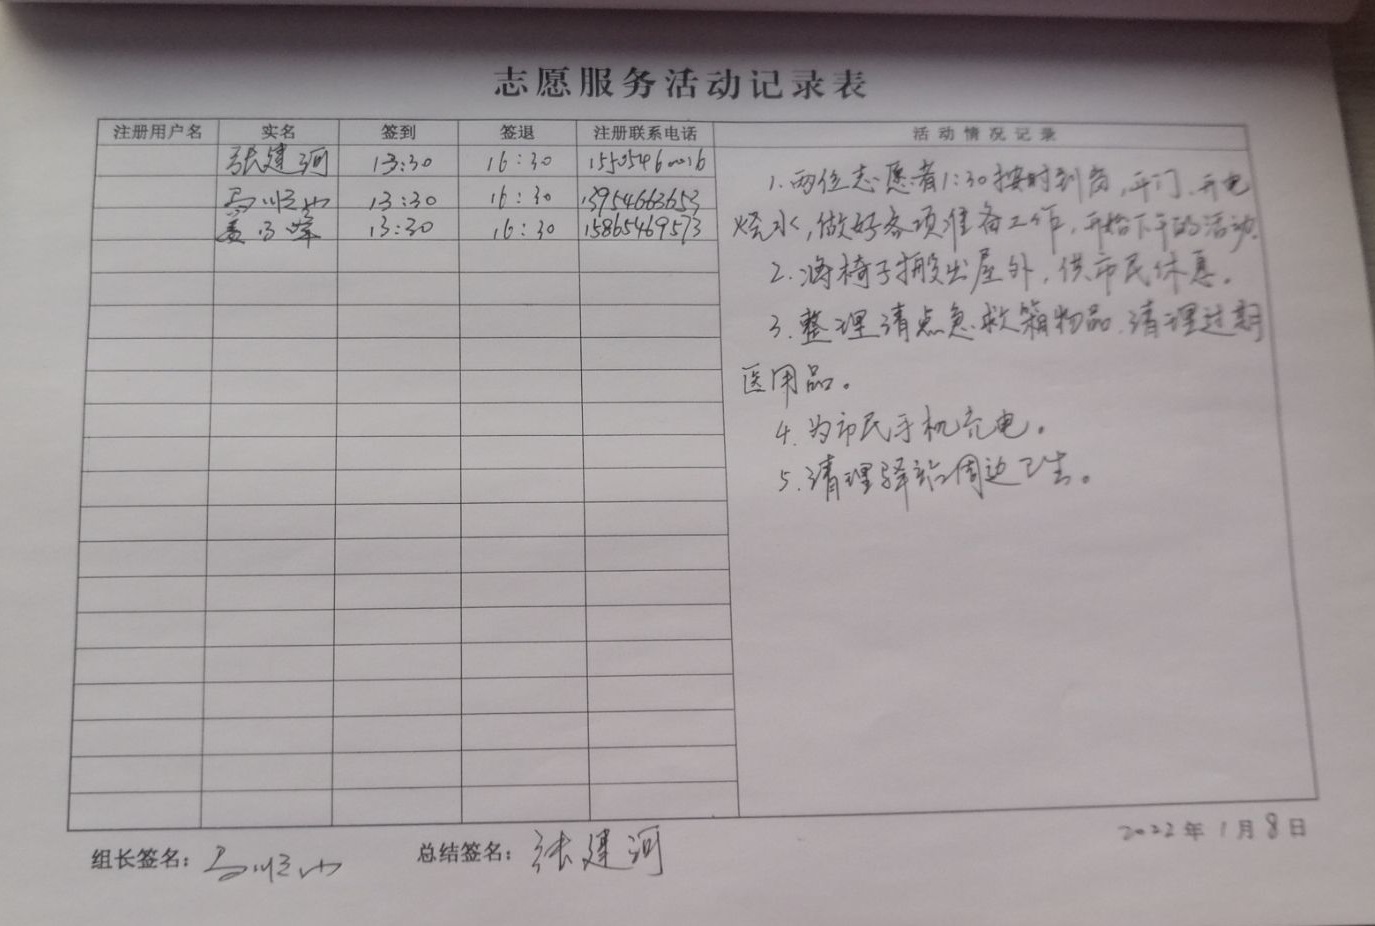 志愿服务活动记录表
注册用户名 实名 签到 签退 注册联系电话 活动情况记录
张建河 13:30 16:30 15505460016
马顺山 13:30 16:30 13954663653
姜马峰 13:30 16:30 15865469573
1.两位志愿者1:30按时到岗,开门、开电
烧水,做好各项准备工作,开始下午的活动.
2.将椅子搬出屋外,供市民休息。
3.整理清点急救箱物品,清理过期
医用品。
4.为市民手机充电。
5.清理驿站周边卫生。
2022年1月8日
组长签名: 马顺山 总结签名: 张建河